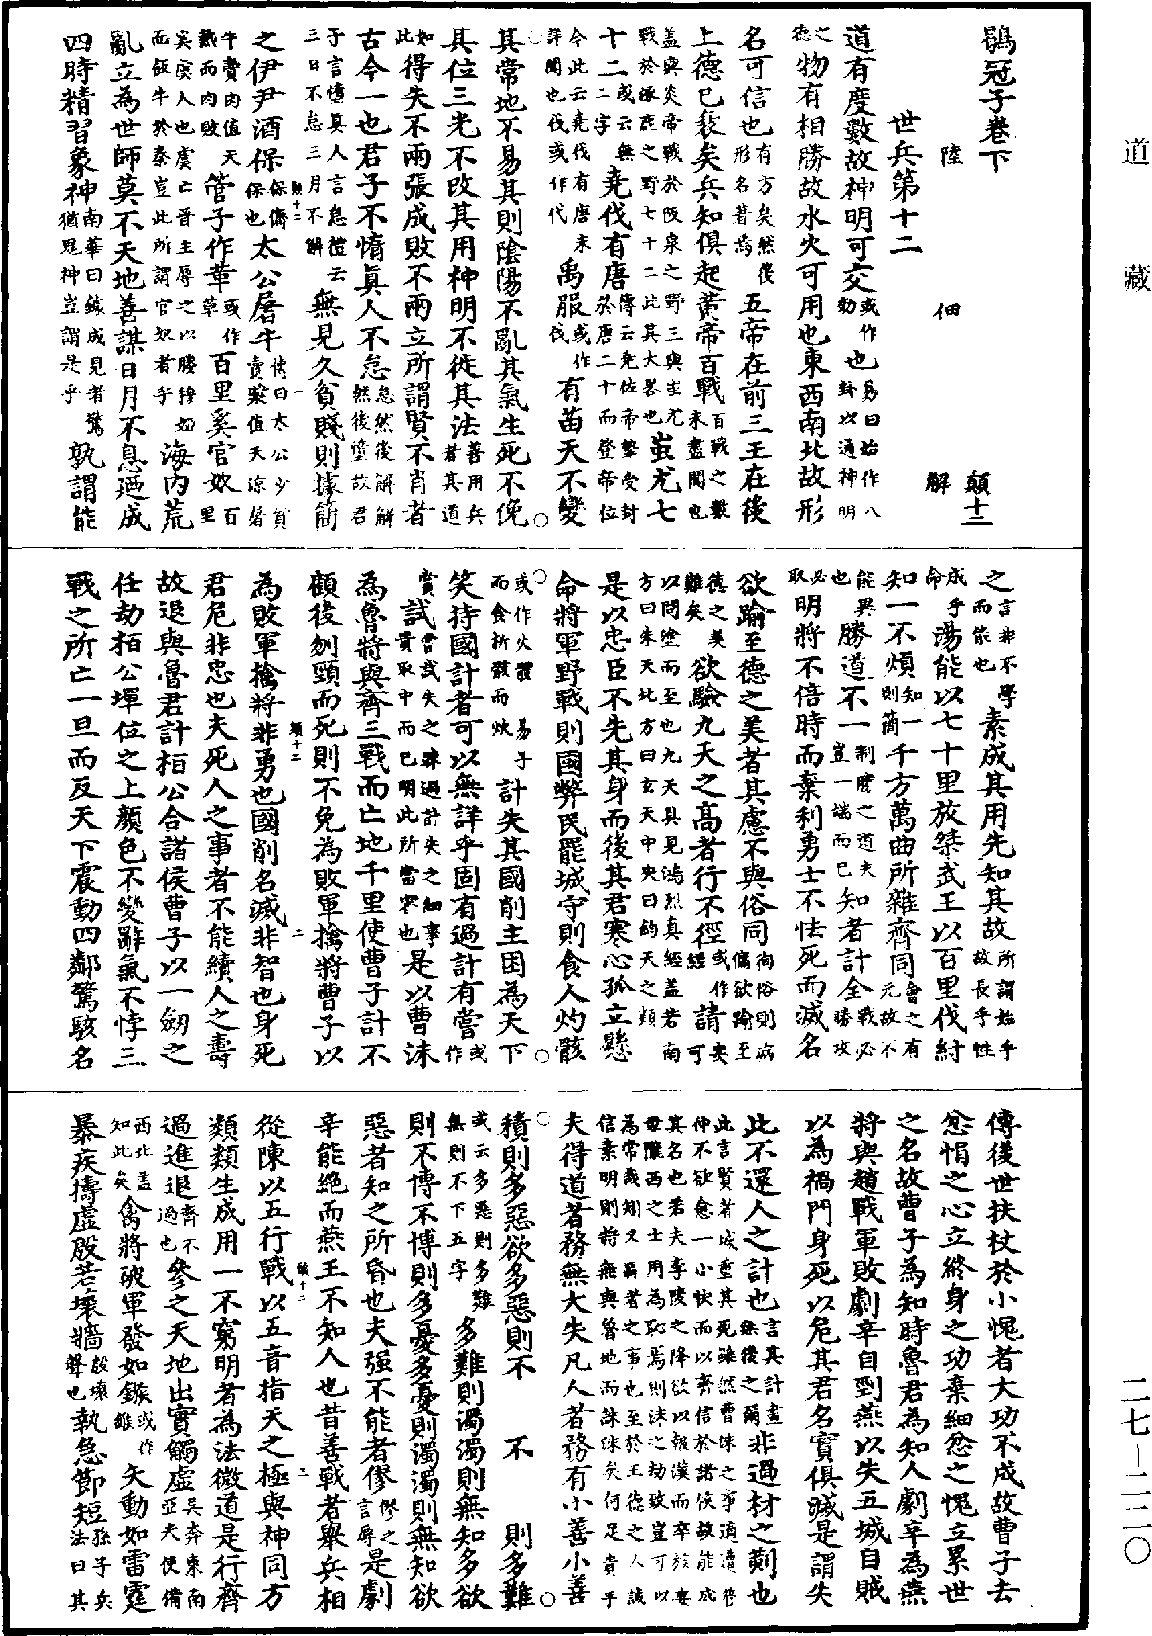 道藏
二七－二二〇
鶡冠子卷下
陸佃解　顛十二
世兵第十二
道有度數故神明可交或作効也易曰始作八卦以通神明
之德物有相勝故水火可用也東西南北故形
名可信也有方矣然後形名著焉五帝在前三王在後
上德已衰矣兵知俱起黃帝百戰百戰之數未盡聞也
蓋與炎帝戰於阪泉之野三與蚩尤戰於涿鹿之野七十二此其大畧也蚩尤七
十二或云無十二二字堯伐有唐傳云堯佐帝摯受封於唐二十而登帝位
今此云堯伐有唐未詳聞也伐或作代禹服或作伐有苗天不變
其常地不易其則陰陽不亂其氣生死不俛
其位三光不改其用神明不徙其法善用兵者其道
如此得失不兩張成敗不兩立所謂賢不肖者
古今一也君子不惰真人不怠怠然後解解然後墮故君
子言憧真人言怠禮云三日不怠三月不解無見久貧賤則據簡
之伊尹酒保保傭保也太公屠牛傳曰太公少貧賣漿值天涼屠
牛賣肉值天熱而肉敗管子作革或作草百里奚官奴百里
奚虞人也虞亡晉主辱之以媵穆姬而飯牛於秦豈此所謂官奴者乎海內荒
亂立為世師莫不天地善謀日月不息迺成
四時精習象神南華曰鐻成見者驚猶鬼神豈謂是乎孰謂能
之言非不學而能也素成其用先知其故所謂始乎故長乎性
成乎命湯能以七十里放桀武王以百里伐紂
知一不煩知一則簡千方萬曲所雜齊同會之有元故不
能異也勝道不一制勝之道夫豈一端而已知者計全戰必勝攻
必取明將不倍時而棄利勇士不怯死而滅名
欲踰至德之美者其慮不與俗同尚俗則病偏欲踰至
德之美難矣欲驗九天之高者行不徑或作經請奕可
以問塗而至也九天具見鴻烈真經蓋若南方曰朱天北方曰玄天中央曰鈞天之類
是以忠臣不先其身而後其君寒心孤立懸
命將軍野戰則國弊民罷城守則食人灼骸
或作火體易子而食析骸而炊計失其國削主困為天下
笑持國計者可以無詳乎固有過計有嘗或作
賞試嘗試失之疎過計失之細事貴取中而已明此所當察也是以曹沬
為魯將與齊三戰而亡地千里使曹子計不
顧後刎頸而死則不免為敗軍擒將曹子以
為敗軍擒將非勇也國削名滅非智也身死
君危非忠也夫死人之事者不能續人之壽
故退與魯君計桓公合諸侯曹子以一劒之
任劫桓公墠位之上顏色不變辭氣不悖三
戰之所亡一旦而反天下震動四鄰驚駭名
傳後世扶杖於小愧者大功不成故曹子去
忿悁之心立終身之功棄細忿之愧立累世
之名故曹子為知時魯君為知人劇辛為燕
將與趙戰軍敗劇辛自剄燕以失五城自賊
以為禍門身死以危其君名實俱滅是謂失
此不還人之計也言其計畫無後之爾非過材之䇲也
此言賢者誠重其死雖然曹沬之事適遭管仲不欲愈一小快而以齊信於諸侯故能成
其名也若夫李陵之降欲以報漢而卒族妻母隴西之士用為恥焉則沬之劫致豈可以
為常哉翅又霸者之事也至於王德之人誠信素明則將無與魯地而誅沬矣何足貴乎
夫得道者務無大失凡人者務有小善小善
積則多惡欲多惡則不　不　則多難
或云多惡則多難無則不下五字多難則濁濁則無知多欲
則不博不博則多憂多憂則濁濁則無知欲
惡者知之所昏也夫强不能者僇僇之言辱是劇
辛能絶而燕王不知人也昔善戰者舉兵相
從陳以五行戰以五音指天之極與神同方
類類生成用一不窮明者為法微道是行齊
過進退齊不過也參之天地出實觸虛吳奔東南亞夫使備
西北蓋知此矣禽將破軍發如鏃或作錐矢動如雷霆
暴疾擣虛殷若壞牆殷壞聲也執急節短孫子兵法曰其